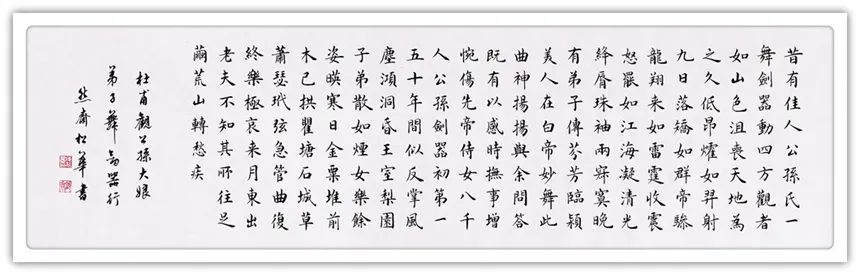 昔有佳人公孫氏一
舞劍器動四方觀者
如山色沮喪天地為
之久低昂燿如羿射
九日落矯如群帝驂
龍翔来如雷霆收震
怒罷如江海凝清光
絳脣珠袖兩寂寞晚
有弟子傳芬芳臨潁
美人在白帝妙舞此
曲神揚揚與余問答
既有以感時撫事增
惋傷先帝侍女八千
人公孫劍器初第一
五十年間似反掌風
塵澒洞昏王室梨園
子弟散如煙女樂餘
姿暎寒日金粟堆前
木已拱瞿塘石城草
蕭瑟玳弦急管曲復
終樂極哀来月東出
老夫不知其所往足
繭荒山轉愁疾
杜甫觀公孫大娘
弟子舞劍器行
齋松華書